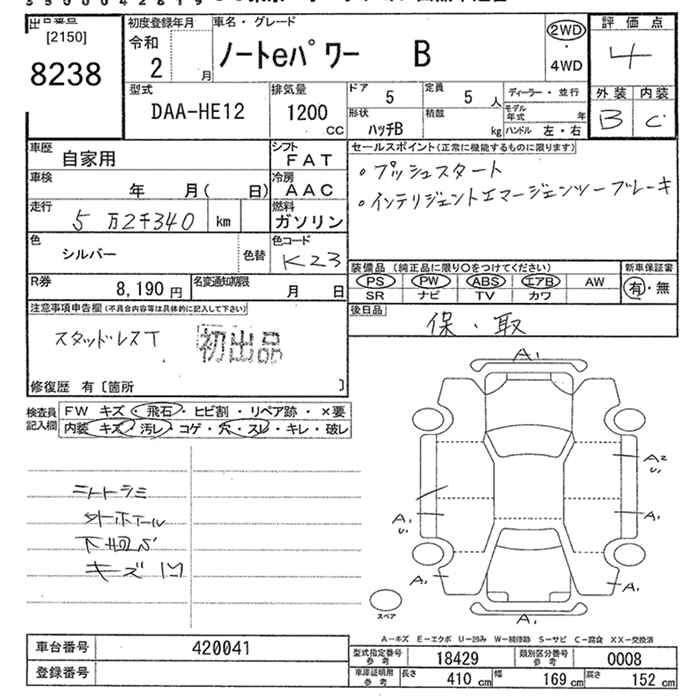 出品番号
[2150]
8238
初度登録年月
令和
2 月
車名・グレード
ノートeパワー B
2WD
・
4WD
評価点
4
外装 内装
B C
型式
DAA-HE12
排気量
1200
cc
ドア
5
定員
5 人
形状
ハッチB
積載
kg
ディーラー・並行
モデル年式 年
ハンドル 左・右
車歴
自家用
シフト
FAT
セールスポイント(正常に機能するものに限ります)
・プッシュスタート
・インテリジェントエマージェンシーブレーキ
車検
年 月( 日)
冷房
AAC
走行
5万2千340 km
燃料
ガソリン
色
シルバー
色替
色コード
K23
装備品(純正品に限り○をつけてください)
PS PW ABS エアB AW
SR ナビ TV カワ
新車保証書
有・無
R券
8,190 円
名変通知期限
月 日
後日品
保・取
注意事項申告欄(不具合内容等は具体的に記入して下さい)
スタッドレスT
初出品
修復歴 有〔箇所 〕
検査員
記入欄
FW キズ・飛石・ヒビ割・リペア跡・×要
内装 キズ・汚レ・コゲ・穴・スレ・キレ・破レ
外ホイール
下廻サビ
キズ凹
A1
A2
U1
A1
U1
A1
A1
A1
A1
スペア
A-キズ E-エクボ U-凹み W-補修跡 S-サビ C-腐食 XX-交換済
車台番号
420041
登録番号
型式指定番号
参考
18429
類別区分番号
参考
0008
車庫証明用
参考
長さ
410 cm
幅
169 cm
高さ
152 cm